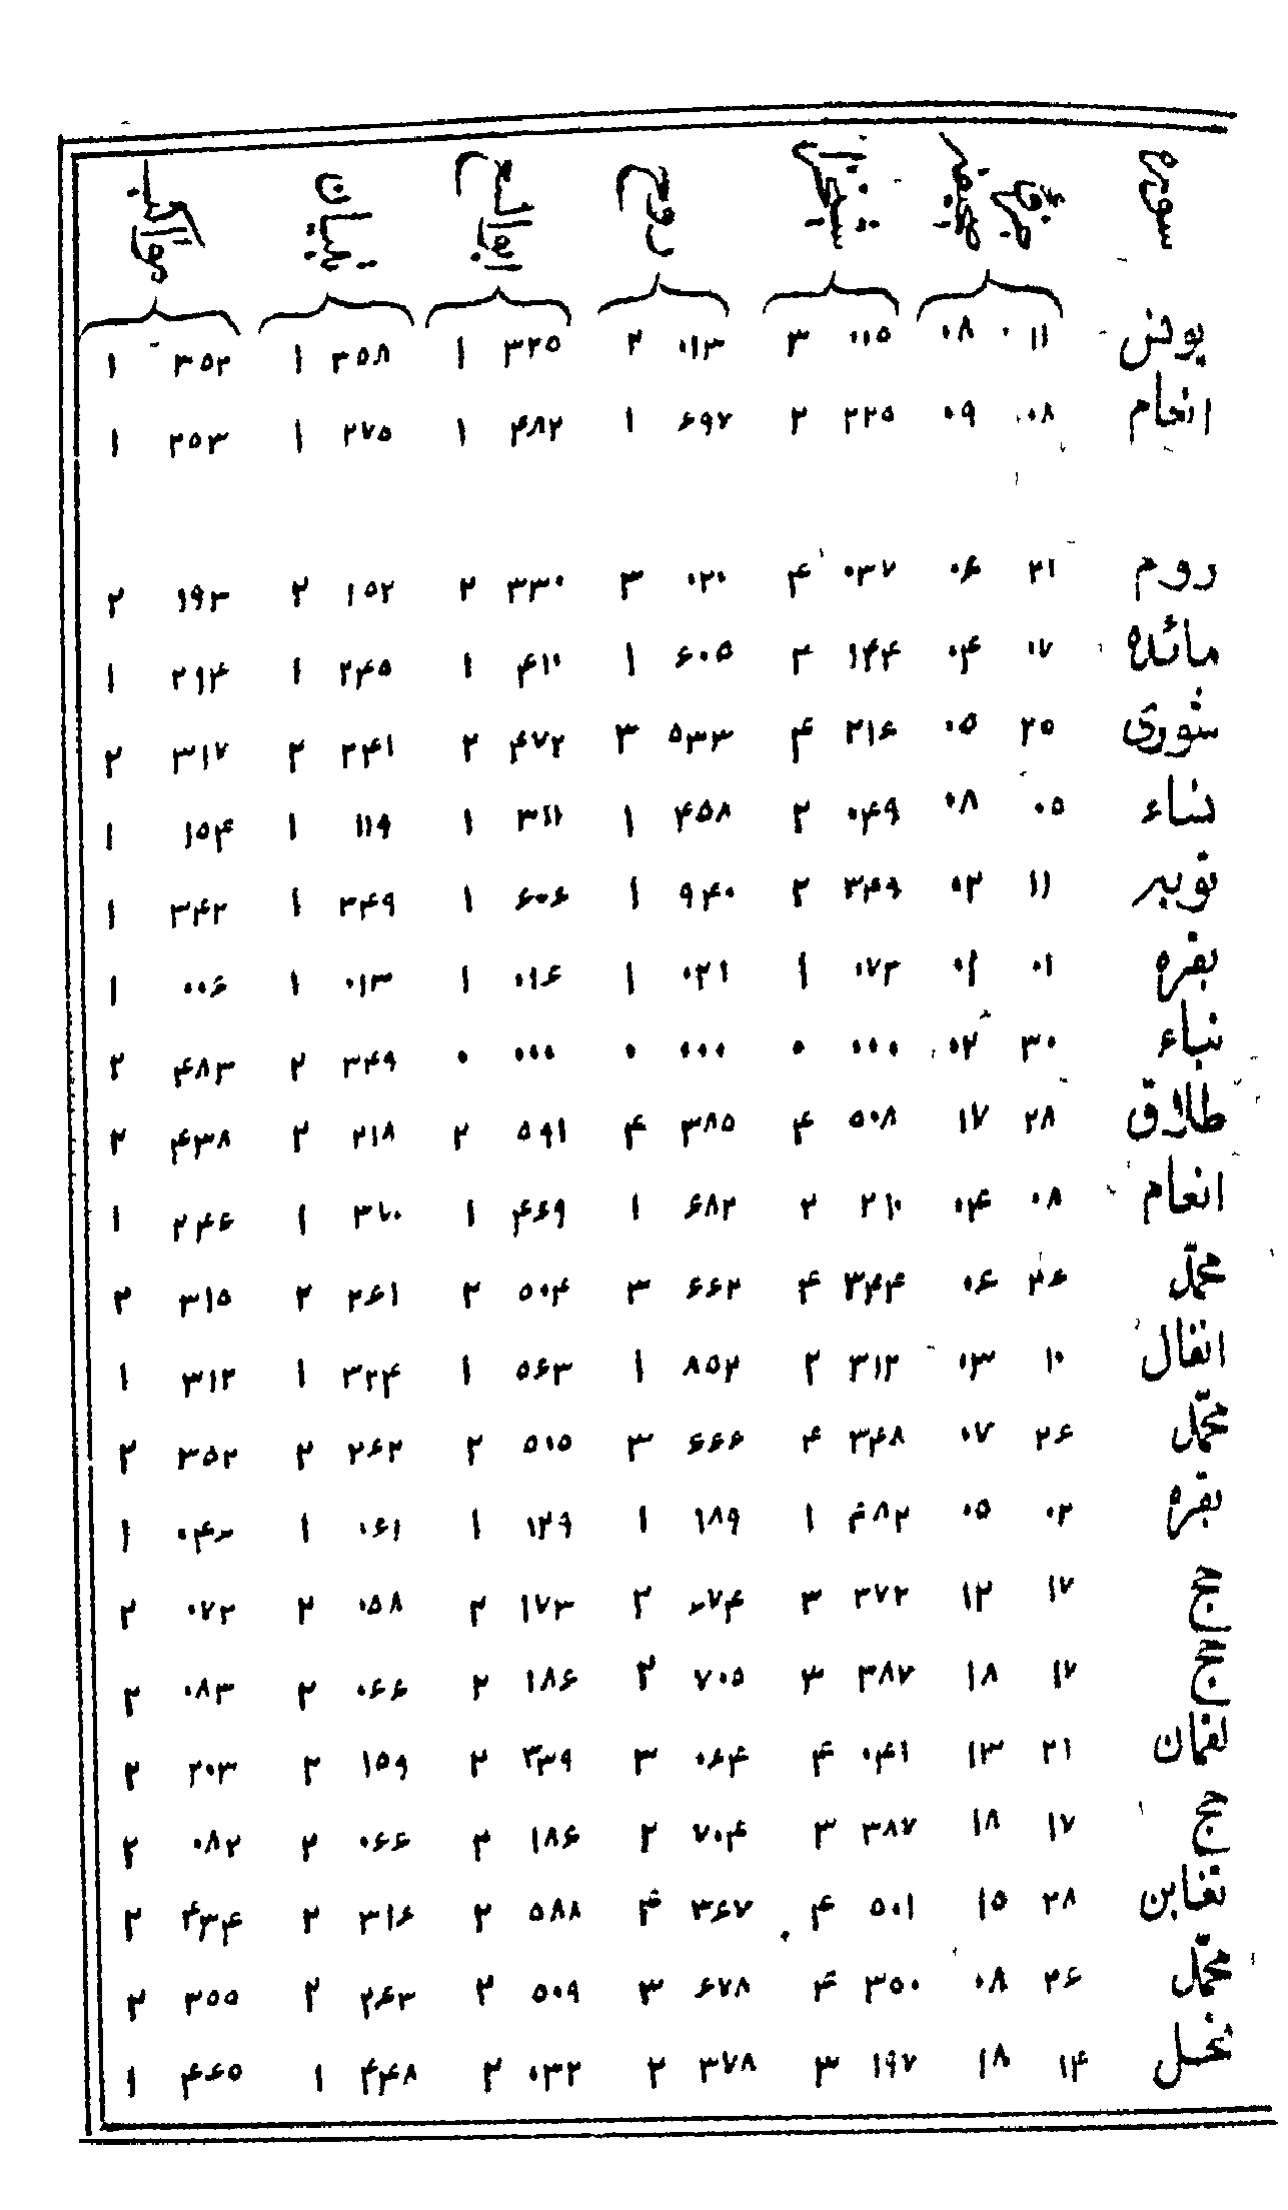 سوره
یونس ۱۱ ۰۸ ۰۱۵ ۳ ۰۱۳ ۲ ۳۲۵ ۱ ۳۵۸ ۱ ۳۵۲ ۱
انعام ۰۸ ۰۹ ۲۲۵ ۲ ۶۹۷ ۱ ۴۸۲ ۱ ۲۷۵ ۱ ۲۵۳ ۱
روم ۲۱ ۰۶ ۰۳۷ ۴ ۰۲۰ ۳ ۳۳۰ ۲ ۱۵۲ ۲ ۱۹۳ ۲
مائده ۰۷ ۰۴ ۱۴۴ ۲ ۶۰۵ ۱ ۴۱۰ ۱ ۲۴۵ ۱ ۲۱۴ ۱
شوری ۲۵ ۰۵ ۲۱۶ ۴ ۵۳۳ ۳ ۴۷۲ ۲ ۲۴۱ ۲ ۳۱۷ ۲
نساء ۰۵ ۰۸ ۰۴۹ ۲ ۴۵۸ ۱ ۳۱۱ ۱ ۱۱۹ ۱ ۱۵۴ ۱
توبه ۱۱ ۰۲ ۳۴۹ ۲ ۹۴۰ ۱ ۶۰۶ ۱ ۳۴۹ ۱ ۳۴۲ ۱
بقره ۰۱ ۰۱ ۰۷۳ ۱ ۰۲۱ ۱ ۰۱۶ ۱ ۰۱۳ ۱ ۰۰۶ ۱
نباء ۳۰ ۰۲ ۰۰۰ ۰ ۰۰۰ ۰ ۰۰۰ ۰ ۳۴۹ ۲ ۴۸۳ ۲
طلاق ۲۸ ۱۷ ۵۰۸ ۴ ۳۸۵ ۴ ۵۹۱ ۲ ۲۱۸ ۲ ۴۳۸ ۲
انعام ۰۸ ۰۴ ۲۱۰ ۲ ۶۸۲ ۱ ۴۶۹ ۱ ۱ ۲۴۶ ۱
محمّد ۲۶ ۰۶ ۳۴۴ ۴ ۶۶۲ ۳ ۵۰۴ ۲ ۲۶۱ ۲ ۳۱۵ ۲
انفال ۱۰ ۰۳ ۳۱۲ ۲ ۸۵۲ ۱ ۵۶۳ ۱ ۳۲۴ ۱ ۳۱۲ ۱
محمّد ۲۶ ۰۷ ۳۴۸ ۴ ۶۶۶ ۳ ۵۰۵ ۲ ۲۶۲ ۲ ۳۵۲ ۲
بقره ۰۲ ۰۵ ۴۸۲ ۱ ۱۸۹ ۱ ۱۲۹ ۱ ۰۶۱ ۱ ۰۴۲ ۱
حج ۱۷ ۱۲ ۳۷۲ ۳ ۶۷۴ ۲ ۱۷۳ ۲ ۰۵۸ ۲ ۰۷۲ ۲
حج ۱۷ ۱۸ ۳۸۷ ۳ ۷۰۵ ۲ ۱۸۶ ۲ ۰۶۶ ۲ ۰۸۳ ۲
لقمان ۲۱ ۱۳ ۰۴۱ ۴ ۰۶۴ ۳ ۳۳۹ ۲ ۱۵۹ ۲ ۲۰۳ ۲
حج ۱۷ ۱۸ ۳۸۷ ۳ ۷۰۴ ۲ ۱۸۶ ۲ ۰۶۶ ۲ ۰۸۲ ۲
تغابن ۲۸ ۱۵ ۵۰۱ ۴ ۳۶۷ ۴ ۵۸۸ ۲ ۳۱۶ ۲ ۴۳۴ ۲
محمّد ۲۶ ۰۸ ۳۵۰ ۴ ۶۷۸ ۳ ۵۰۹ ۲ ۲۶۳ ۲ ۳۵۵ ۲
نحل ۱۴ ۱۸ ۱۹۷ ۳ ۳۷۸ ۲ ۰۳۲ ۲ ۴۴۸ ۱ ۴۶۵ ۱